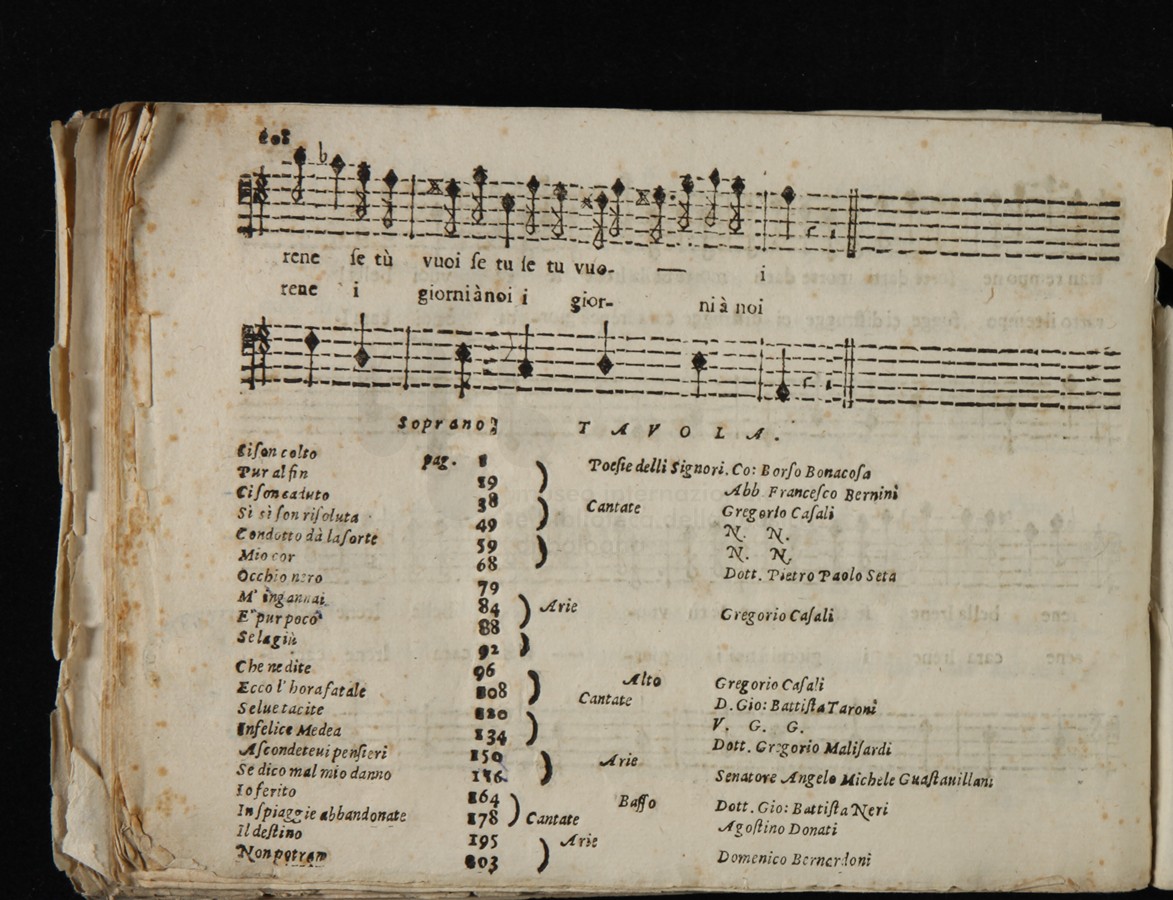 208
rene ſe tù vuoi ſe tu ſe tu vuo- i
rene i giorni à noi i gior- ni à noi
Soprano TAVOLA.
Ci ſon colto pag. 1 Poeſie delli Signori. Co: Borſo Bonacoſa
Pur al fin 19 Abb. Franceſco Bernini
Ci ſon caduto 38 Cantate Gregorio Caſali
Sì sì ſon riſoluta 49 N. N.
Condotto dà la ſorte 59 N. N.
Mio cor 68 Dott. Pietro Paolo Seta
Occhio nero 79
M' ingannai 84 Arie Gregorio Caſali
E' pur poco 88
Se la giù 92
Che ne dite 96 Alto Gregorio Caſali
Ecco l' hora fatale 108 Cantate D. Gio: Battiſta Taroni
Selue tacite 120 V. G. G.
Infelice Medea 134 Dott. Gregorio Maliſardi
Aſcondeteui penſieri 150 Arie
Se dico mal mio danno 156 Senatore Angelo Michele Guaſtauillani
Io ferito 164 Baſſo Dott. Gio: Battiſta Neri
In ſpiaggie abbandonate 178 Cantate Agoſtino Donati
Il deſtino 195 Arie
Non potran 203 Domenico Bernardoni